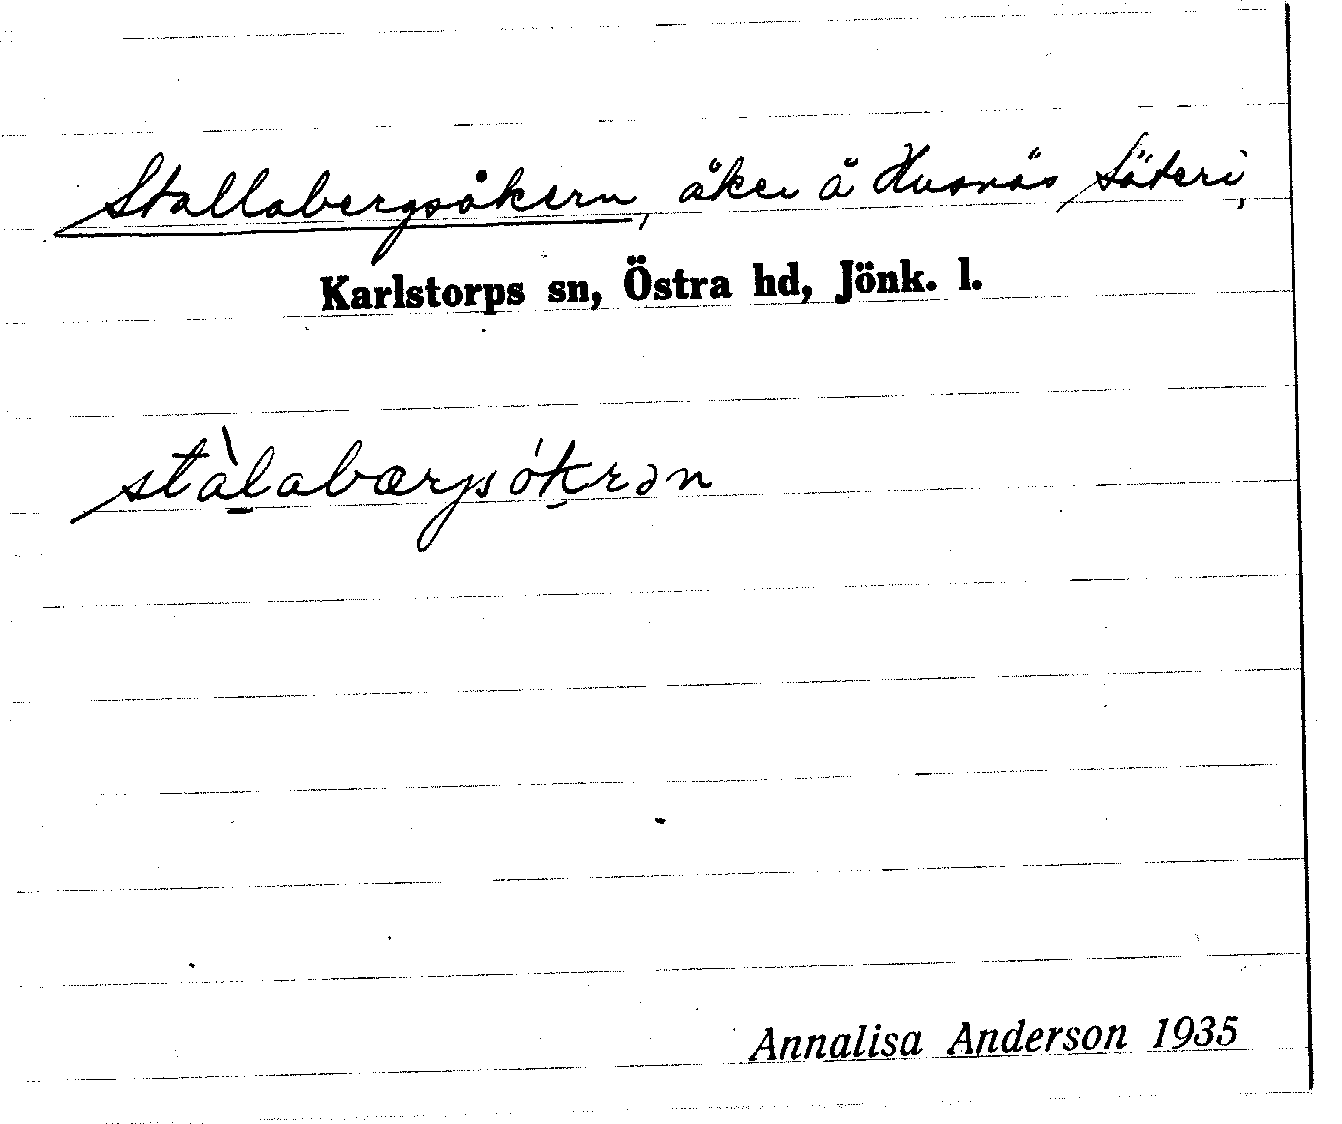 Stallabergsåkern, åker å Husnäs Säteri,
Karlstorps sn, Östra hd, Jönk. l.
stàlabærjsókrən
Annalisa Anderson 1935